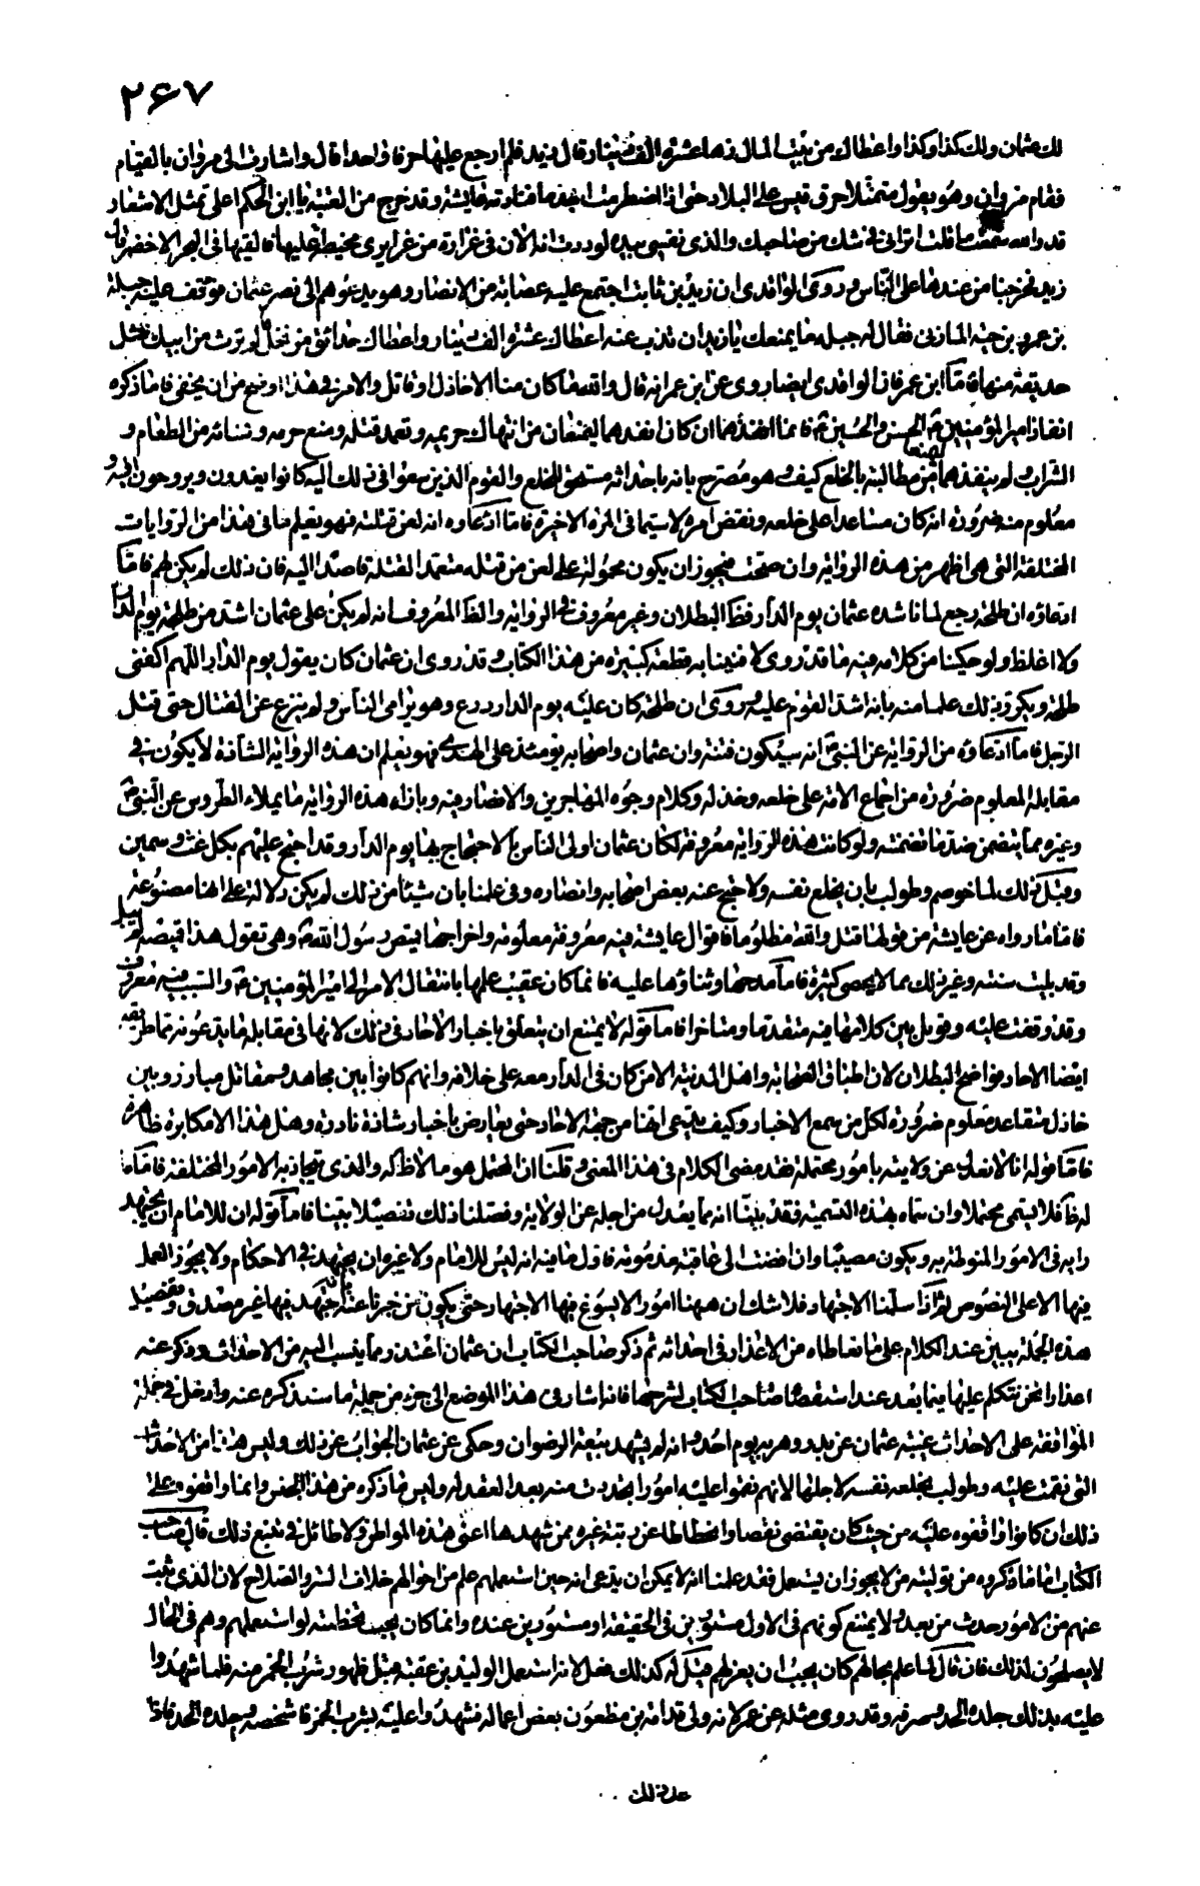 ٢٦٧
لك عثمان ولك كذا وكذا واعطاك من بيت المال زهاء عشرة الف دينار قال زيد فلم ارجع عليها حرفا واحدا قال واشارت الى مروان بالقيام
فقام مروان وهو يقول متمثلا حرق قيس على البلاد حتى اذا اضطرمت اجذما فنادته عايشة وقد خرج من العتبة يا ابن الحكم اعلى تمثل الاشعار
قد والله سمعت ما قلت اتراني في شك من صاحبك والذي نفسي بيده لوددت انه الان في غرارة من غرايري مخيط عليها فالقيها في البحر الاخضر قال
زيد فخرجنا من عندها على الناس وروى الواقدي ان زيد بن ثابت اجتمع عليه عصابة من الانصار وهو يدعوهم الى نصر عثمان فوقف عليه جبلة
بن عمرو بن حبة المازني فقال له جبلة ما يمنعك يا زيد ان تذب عنه اعطاك عشرة الف دينار واعطاك حدائق من نخل لم ترث من ابيك مثل
حديقة منها فاما ابن عمر فان الواقدي ايضا روى عن ابن عمر انه قال والله ما كان منا الا خاذل او قاتل والامر في هذا اوضح من ان يخفى فاما ذكره
انفاذ امير المؤمنين الحسن والحسين فانما انفذهما ان كان انفذهما ليمنعان من انتهاك حريمه وتعمد قتله ومنع حرمه ونسائه من الطعام و
الشراب ولم ينفذهما ليمنعا من مطالبته بالخلع كيف وهو مصرح بانه باحداثه مستحق للخلع والقوم الذين سعوا في ذلك اليه كانوا يغدون ويروحون اليه و
معلوم منه ضرورة انه كان مساعدا على خلعه ونقض امره لا سيما في المرة الاخيرة فاما ادعاوه انه لعن قتلته فهو يعلم ما في هذا من الروايات
المختلفة التي هي اظهر من هذه الرواية وان صحت فيجوز ان يكون محمولة على لعن من قتله متعمدا لقتله قاصدا اليه فان ذلك لم يكن لهم فاما
ادعاؤه ان طلحة رجع لما ناشده عثمان يوم الدار فظاهر البطلان وغير معروف في الرواية والظاهر المعروف انه لم يكن على عثمان اشد من طلحة يوم الدار
ولا اغلظ ولو حكينا من كلامه فيه ما قد روى لافنينا به قطعة كبيرة من هذا الكتاب وقد روى ان عثمان كان يقول يوم الدار اللهم اكفني
طلحة ويكرر ذلك علما منه بانه اشد القوم عليه وروى ان طلحة كان عليه يوم الدار درع وهو يرامى الناس ولم ينزع عن القتال حتى قتل
الرجل فاما ادعاؤه من الرواية عن النبي انه سيكون فتنة وان عثمان واصحابه يومئذ على الهدى فهو يعلم ان هذه الرواية الشاذة لا يكون في
مقابلة المعلوم ضرورة من اجماع الامة على خلعه وخذله وكلام وجوه المهاجرين والانصار فيه وبازاء هذه الرواية ما يملاء الطروس عن النبي
وغيره مما يتضمن ضد ما تضمنته ولو كانت هذه الرواية معروفة لكان عثمان اولى الناس بالاحتجاج بها يوم الدار وقد احتج عليهم بكل غث وسمين
وقبل ذلك لما خوصم وطولب بان يخلع نفسه ولاحتج عنه بعض اصحابه وانصاره وفي علمنا بان شيئا من ذلك لم يكن دلالة على انها مصنوعة
فاما ما رواه عن عايشة من قولها قتل والله مظلوما فاقوال عايشة فيه معروفة معلومة واخراجها قميص رسول الله وهي تقول هذا قميصه لم يبل
وقد بليت سنته وغير ذلك مما لا يحصى كثرة فاما مدحها وثناؤها عليه فانما كان عقيب علمها بانتقال الامر الى امير المؤمنين والسبب فيه معروف
وقد وقفت عليه وقوبل بين كلامها فيه متقدما ومتاخرا فاما قوله لا يمتنع ان يتعلق باخبار الاحاد في ذلك لانها في مقابلة ما يدعونه مما طريقه
ايضا الاحاد فواضح البطلان لان اطباق الصحابة واهل المدينة الا من كان في الدار معه على خلافه وانهم كانوا بين مجاهد ومقاتل مبارز وبين
خاذل متقاعد معلوم ضرورة لكل من سمع الاخبار وكيف يدعى انها من جهة الاحاد حتى يعارض باخبار شاذة نادرة وهل هذا الا مكابرة ظاهرة
فاما قوله انا لا نعدل عن ولايته بامور محتملة فقد مضى الكلام في هذا المعنى وقلنا ان المحتمل هو ما لا ظاهر له والذي يتجاذبه الامور المختلفة فاما ما
له ظاهر فلا يسمى محتملا وان سماه بهذه التسمية فقد بينا انه مما يعدل من اجله عن الولاية وفصلنا ذلك تفصيلا بينا فاما قوله ان للامام ان يجتهد
رايه في الامور المنوطة به ويكون مصيبا وان افضت الى عاقبة مذمومة فاول ما فيه انه ليس للامام ولا غيره ان يجتهد في الاحكام ولا يجوز العمل
فيها الا على النصوص ثم اذا سلمنا الاجتهاد فلا شك ان ههنا امورا لا يسوغ فيها الاجتهاد حتى يكون من خبرنا عنه بانه اجتهد فيها غير مصدق وتفصيل
هذه الجملة يبين عند الكلام على ما تعاطاه من الاعذار في احداثه ثم ذكر صاحب الكتاب ان عثمان اعتذر مما ينسب اليه من الاحداث وذكر عنه
اعذارا نحن نتكلم عليها فيما بعد عند استقصاء صاحب الكتاب لشرحها فانه اشار في هذا الموضع الى جزء من جملة ما سنذكره عنه وادخل في جملة
الموافقة على الاحداث غيبة عثمان عن بدر وهربه يوم احد وانه لم يشهد بيعة الرضوان وحكى عن عثمان الجواب عن ذلك وليس هذا من الاحداث
التي نقمت عليه وطولب بخلعه نفسه لاجلها لانهم نقموا عليه امورا تجددت منه بعد العقد له وليس ما ذكره من هذا الجنس وانما واقفوه على
ذلك ان كانوا واقفوه عليه من حيث كان يقتضي نقصا وانحطاطا عن رتبة غيره ممن شهدها اعني هذه المواطن ولا طائل في تتبع ذلك قال صاحب
الكتاب اما ما ذكروه من توليته من لا يجوز ان يستعمل فقد علمنا انه لا يمكن ان يدعى انه حين استعملهم علم من احوالهم خلاف الستر والصلاح لان الذي ثبت
عنهم من الامور حدث من بعد ولا يمتنع كونهم في الاول مستورين في الحقيقة او مستورين عنده وانما كان يجب تخطئته لو استعملهم وهم في الحال
لا يصلحون لذلك فان قال لما علم بحالهم كان يجب ان يعزلهم قيل له كذلك فعل لانه استعمل الوليد بن عقبة قبل ظهور شرب الخمر منه فلما شهدوا
عليه بذلك جلده الحد وصرفه وقد روى مثله عن عمر لانه ولى قدامة بن مظعون بعض اعماله فشهدوا عليه بشرب الخمر فاشخصه وجلده الحد فاذا
عد ذلك